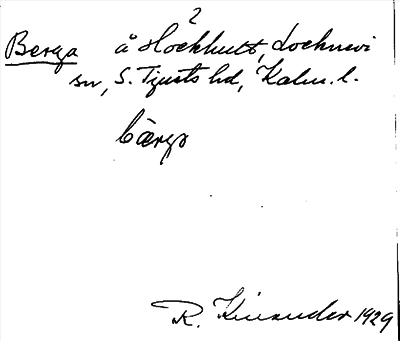 2
Berga å Stockhult, Locknevi
sn, S. Tjusts hd, Kalm. l.
bærga
R. Kinander 1929